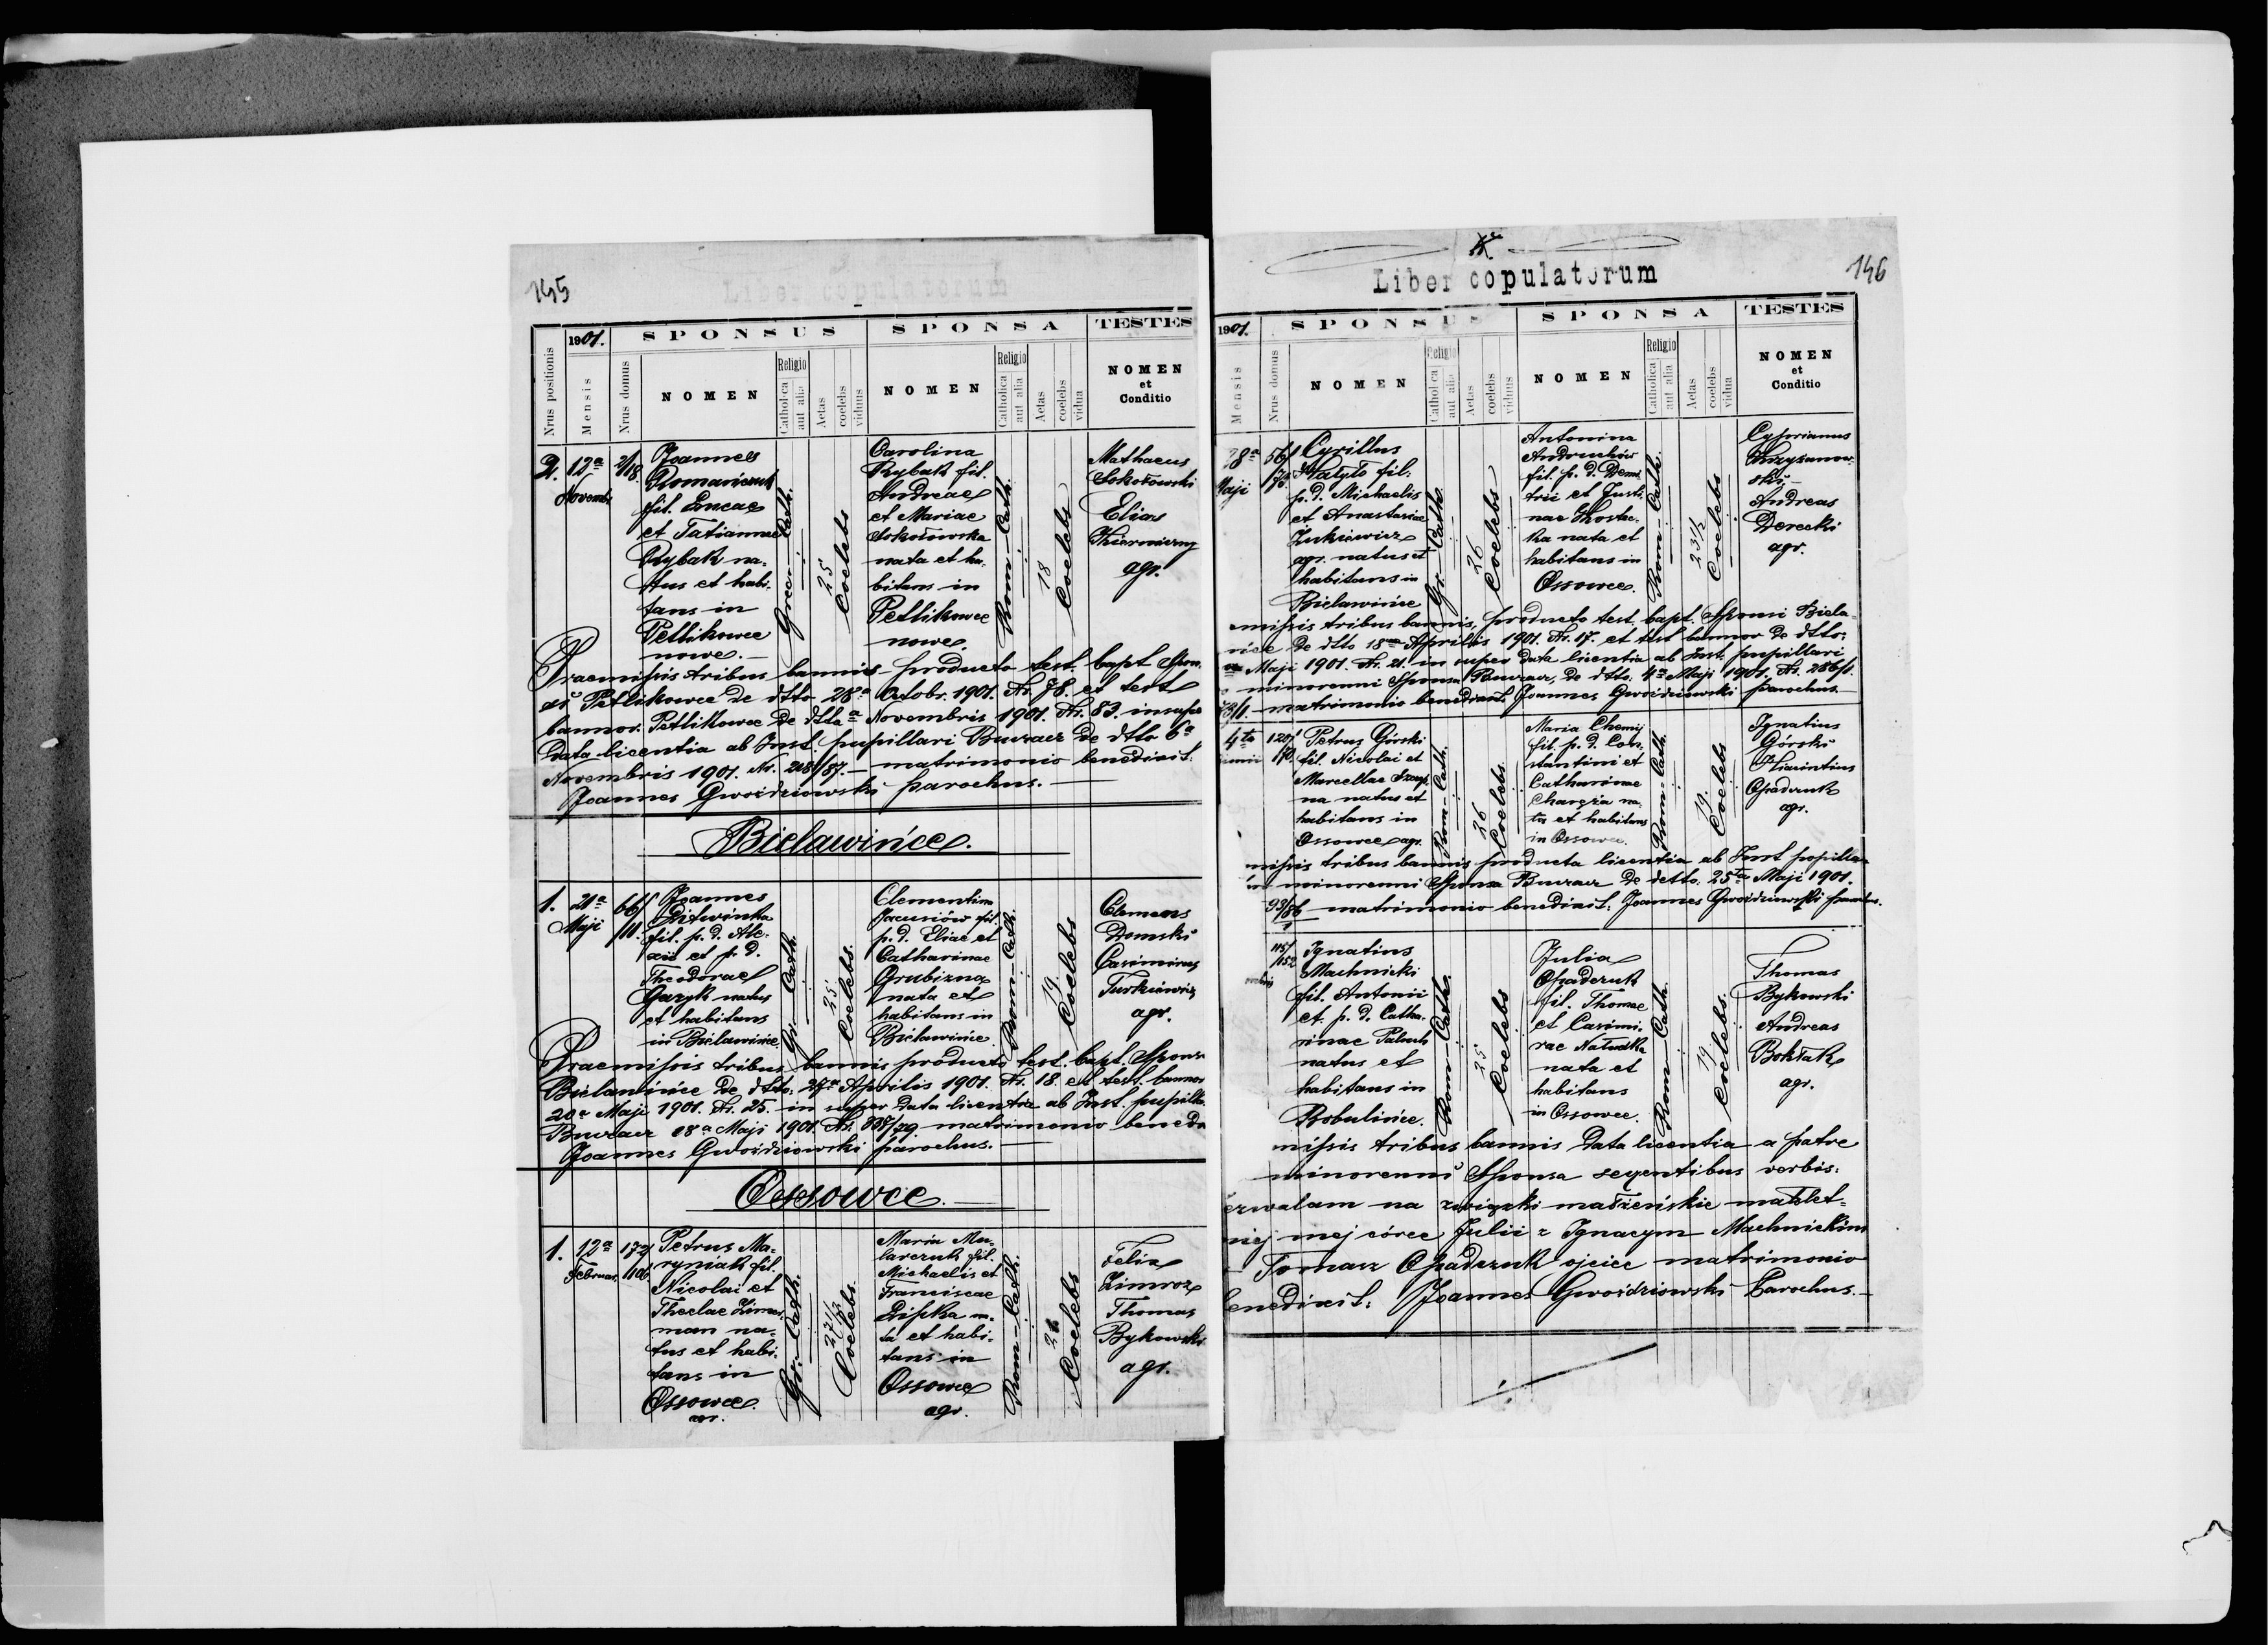 145
Liber copulatorum
1901.
SPONSUS
SPONSA
TESTES
Nrus positionis
Mensis
Nrus domus
NOMEN
Religio
Catholica
aut alia
Aetas
coelebs
viduus
NOMEN
Religio
Catholica
aut alia
Aetas
coelebs
vidua
NOMEN
et
Conditio
2.
12a
Novembr.
2/18
Joannes
Romaniczuk
fil. Lucae
et Tatiannae
Rybak na-
tus et habi-
tans in
Petlikowce
nowe.
Graec. Cath.
25
Coelebs
Carolina
Rybak fil.
Andreae
et Mariae
Sokołowska
nata et ha-
bitans in
Petlikowce
nowe.
Rom-Cath.
18
Coelebs
Mathaeus
Sokołowski
Elias
agr.
Praemissis tribus bannis producto test. bapt. Spon-
si Petlikowce de dtto 28a Octobr. 1901. Nr. 78. et test
bannor. Petlikowce de dtto Novembris 1901. Nr. 83. insuper
data licentia ab Inst. pupillari Buczacz de dtto 6a
Novembris 1901. Nr. 218/87. — matrimonio benedixit:
Joannes Gwoździowski parochus.
Bielawińce.
1.
21a
Maji
66/11.
Joannes
Litwinka
fil. p. d. Ale-
xii et p. d.
Theodorae
Gazyk natus
et habitans
in Bielawińce.
Gr. Cath.
25
Coelebs.
Clementina
Jacusiów fil.
p. d. Eliae et
Catharinae
Grubizna
nata et
habitans in
Bielawińce
Rom-Cath.
19.
Coelebs
Clemens
Domski
Casimirus
Turkiewicz
agr.
Praemissis tribus bannis producto test. bapt. Sponsi
Bielawińce de dtto: 24a Aprilis 1901. Nr. 18. et test. bannor
20a Maji 1901. Nr. 25. in super data licentia ab Inst. pupilla.
Buczacz 18a Maji 1901. Nr. /79 matrimonio bened
Joannes Gwoździowski parochus.
Ossowce.
1.
12a
Februar.
172/106
Petrus Ma-
ryniak fil.
Nicolai et
Theclae Zimer-
man na-
tus et habi-
tans in
Ossowce.
agr.
Gr. Cath.
27 1/2
Coelebs.
Maria Mu-
larczuk fil.
Michaelis et
Franciscae
Lipka na-
ta et habi-
tans in
Ossowce
agr.
Rom-Cath.
Coelebs
Felix
Zimroz
Thomas
Bykowski
agr.
146
Liber copulatorum
1901.
SPONSUS
SPONSA
TESTES
Mensis
Nrus domus
NOMEN
Religio
Catholica
aut alia
Aetas
coelebs
viduus
NOMEN
Religio
Catholica
aut alia
Aetas
coelebs
vidua
NOMEN
et
Conditio
28a
Maji
56/
Cyrillus
fil.
p. d. Michaelis
et Anastasiae
Żukiewicz
agr. natus et
habitans in
Bielawińce
Gr. Cath.
26
Coelebs
Antonina
Andruchów
fil. p. d. Deme-
trii et Justi-
nae
nata et
habitans in
Ossowce.
Rom-Cath.
23 1/2
Coelebs
Cyprianus
Krzyżanow-
ski
Andreas
Derecki
agr.
missis tribus bannis, producto test. bapt. Sponsi Biela-
wice de dtto 18va Aprilis 1901. Nr. 17. et test bannor de dtto:
Maji 1901. Nr. 21. in super data licentia ab Inst. pupillari
minorenni Sponsa Buczacz, de dtto. 4a Maji 1901. Nr. 286/1.
73/1. — matrimonio benedixit. Joannes Gwoździowski parochus.
4ta
Junii
120/
Petrus Górski
fil. Nicolai et
Marcellae
na natus et
habitans in
Ossowce agr.
Rom-Cath.
26
Coelebs.
Maria Chomij
fil. p. d. Con-
stantini et
Catharinae
na-
ta et habitans
in Ossowce.
Rom-Cath.
19.
Coelebs
Ignatius
Górski
Hiacintius
Opadczuk
agr.
missis tribus bannis producta licentia ab Inst popilla-
ri minorenni Sponsa Buczacz de detto. 25ta Maji 1901.
93/86 — matrimonio benedixit: Joannes Gwoździowski parochus.
115/152
Ignatius
Machnicki
fil. Antonii
et. p. d. Catha-
rinae
natus et
habitans in
Bobulińce.
Rom-Cath.
25
Coelebs
Julia
Opadczuk
fil. Thomae
et Casimi-
rae Natudka
nata et
habitans
in Ossowce.
Rom-Cath.
19
Coelebs.
Thomas
Bykowski
Andreas
Boktak
agr.
missis tribus bannis data licentia a patre
minorenni Sponsa seqentibus verbis:
zwalam na związki małżeńskie małolet-
niej mej córce Julii z Ignacym Machnickim
— Tomasz Opadczuk ojciec matrimonio
benedixit: Joannes Gwoździowski Parochus.